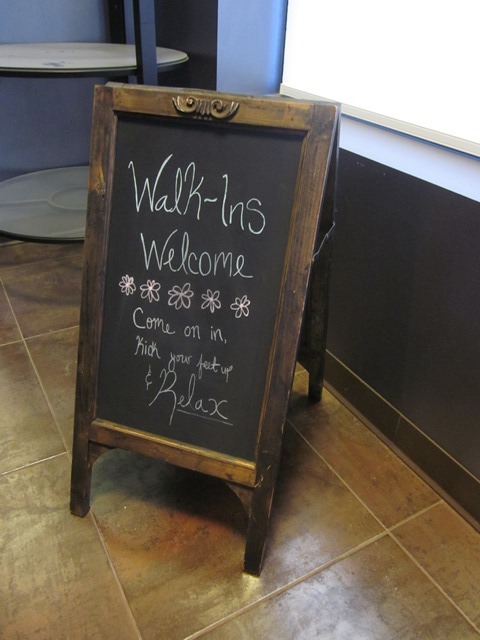 Walk-Ins
Welcome
Come on in,
Kick your feet up
& Relax